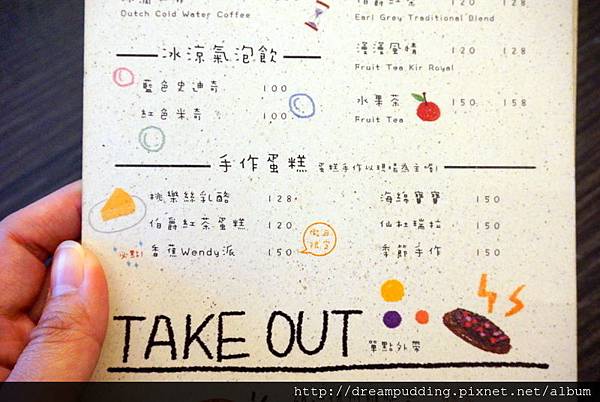 Dutch Cold Water Coffee
120 128
Earl Grey Traditional Blend
冰涼氣泡飲
藍色史迪奇 100
紅色米奇 100
漫漫風情 120 128
Fruit Tea Kir Royal
水果茶 150 158
Fruit Tea
手作蛋糕 蛋糕手作以現場為主唷!
桃樂絲乳酪 128
伯爵紅茶蛋糕 120
必點!
香蕉Wendy派 150
微甜
海綿寶寶 150
仙杜瑞拉 150
季節手作 150
TAKE OUT
單點外帶
http://dreampudding.pixnet.net/album